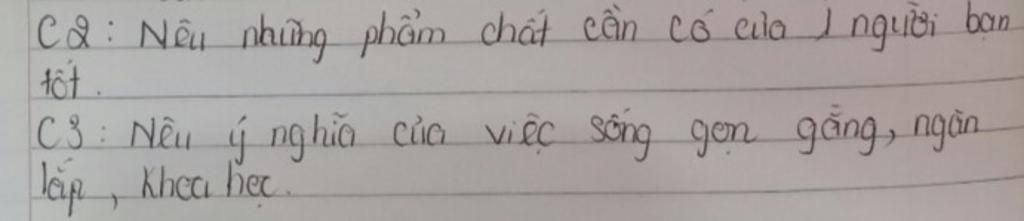 C2: Nêu những phẩm chất cần có của 1 người bạn
tốt.
C3: Nêu ý nghĩa của việc sống gọn gàng, ngăn
lắp, khoa học.